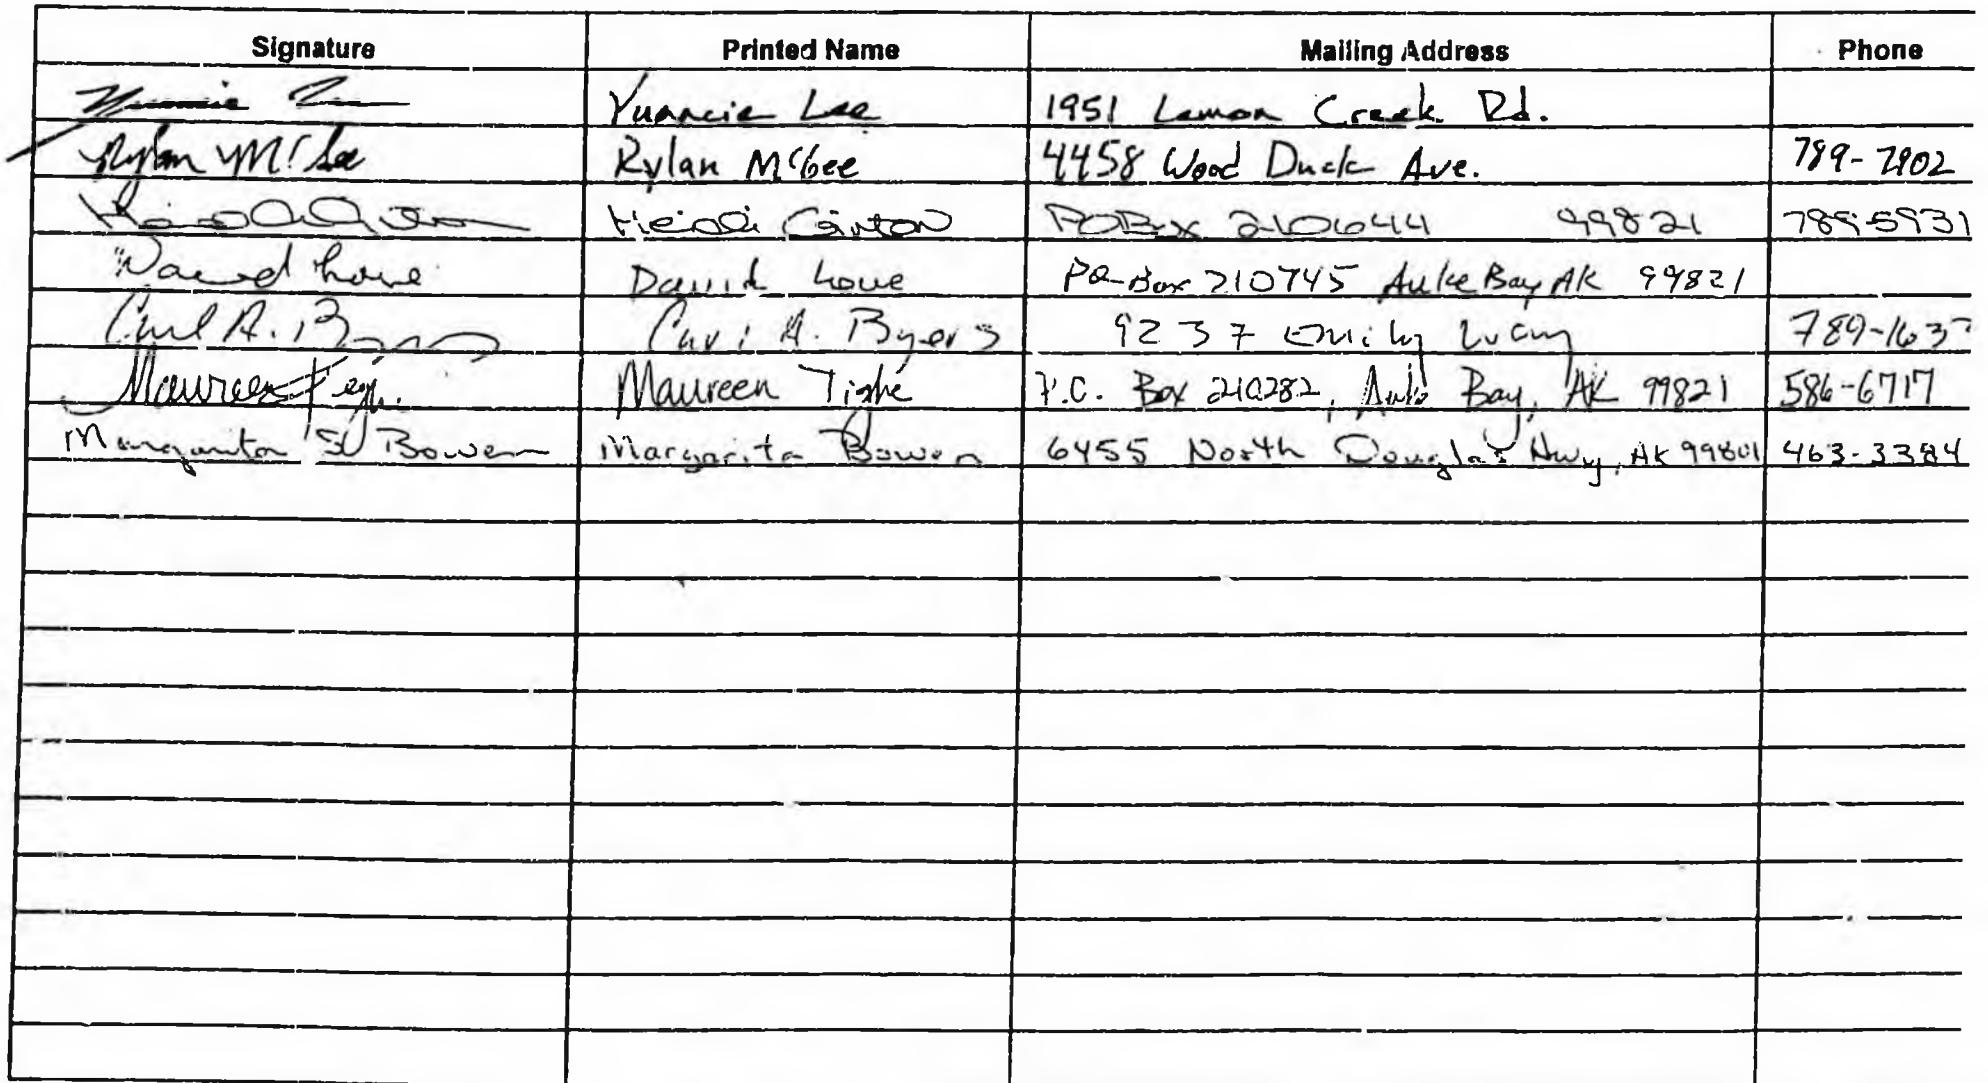 Signature Printed Name Mailing Address Phone
Yuancie Lee 1951 Lemon Creek Rd.
Rylan McGee Rylan McGee 4458 Wood Duck Ave. 789-7902
Heidi PO Box 210644 99821 789-5931
David Lowe David Lowe PO Box 210745 Auke Bay AK 99821
Carl A. Byers A. Byers 9237 Emily Way 789-163
Maureen Maureen Tighe P.O. Box 210282, Auke Bay, AK 99821 586-6717
Margarita Bowen Margarita Bowen 6455 North Douglas Hwy, AK 99801 463-3384